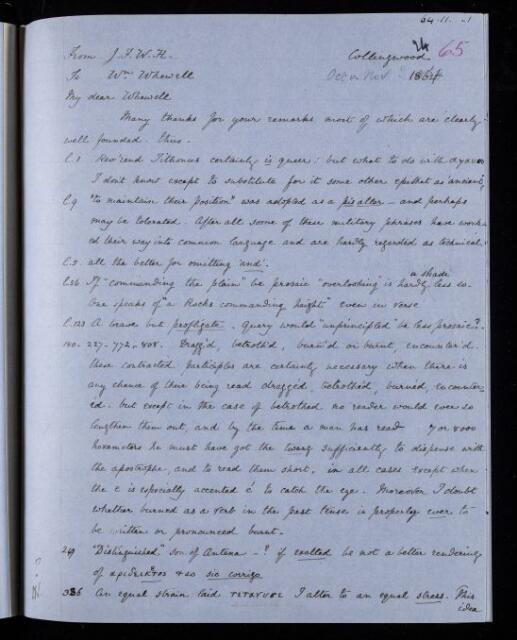 64.11.-1
From J.F.W.H. Collingwood 65
To Wm Whewell Oct or Nov 1864
My dear Whewell
Many thanks for your remarks most of which are clearly
well founded. Thus.
l.1 Rev'rend Tithonus certainly is queer: but what to do with
I don't know except to substitute for it some other epithet as 'ancient'
l.9 "to maintain their position" was adopted as a pis aller – and perhaps
may be tolerated. After all some of these military phrases have work-
ed their way into common language and are hardly regarded as technical.
all the better for omitting 'and'.
If "commanding the plain" be prosaic "overlooking" is hardly a shade less so.
One speaks of "a Rocks commanding height" even in verse
l.123 A brave but profligate. Query would "unprincipled" be less prosaic?
180. 227. 772. 808. Dragg'd, betroth'd, burn'd or burnt, encounter'd.
these contracted participles are certainly necessary when there is
any chance of their being read dragged, betrothed, burned, encounter-
ed. but except in the case of betrothed no reader would even so
lengthen them out, and by the time a man has read 7 or 8000
hexameters he must have got the twang sufficiently to dispense with
the apostrophe, and to read them short, in all cases except when
the e is especially accented é to catch the eye. Moreover I doubt
whether burned as a verb in the past tense is properly ever to
be written or pronounced burnt.
249 "Distinguished" son of Antena – ? if exalted be not a better rendering
of & so sic corrigo
336 An equal strain laid I alter to an equal stress. This
idea